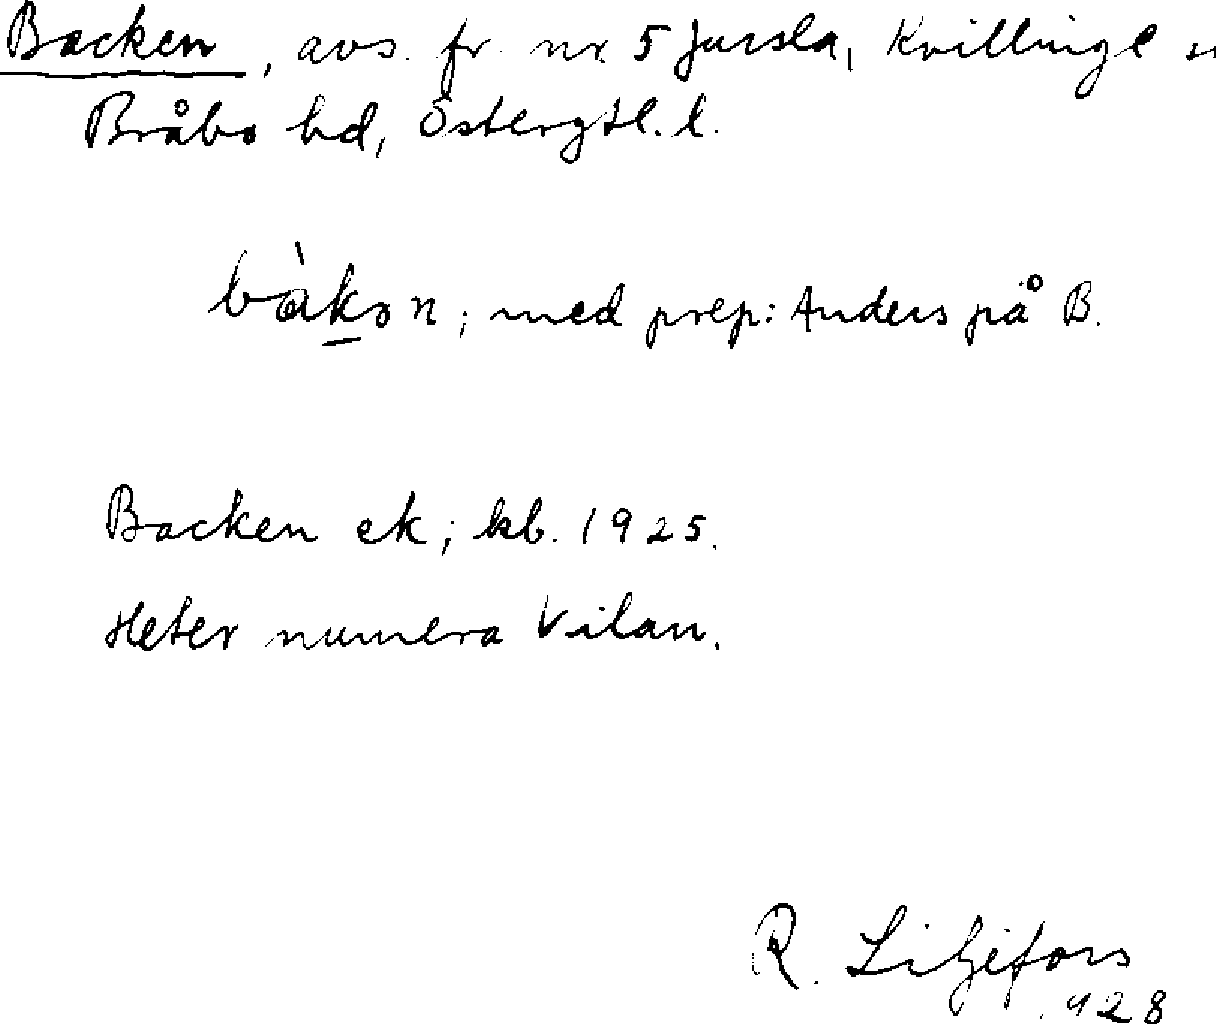 Backen, avs. fr. nr 5 Jursla, Kvillinge
Bråbo hd, Östergtl. l.
bàkən; med prep: Anders på B.
Backen ek; kb. 1925.
Heter numera Vilan.
R. Liljefors
928